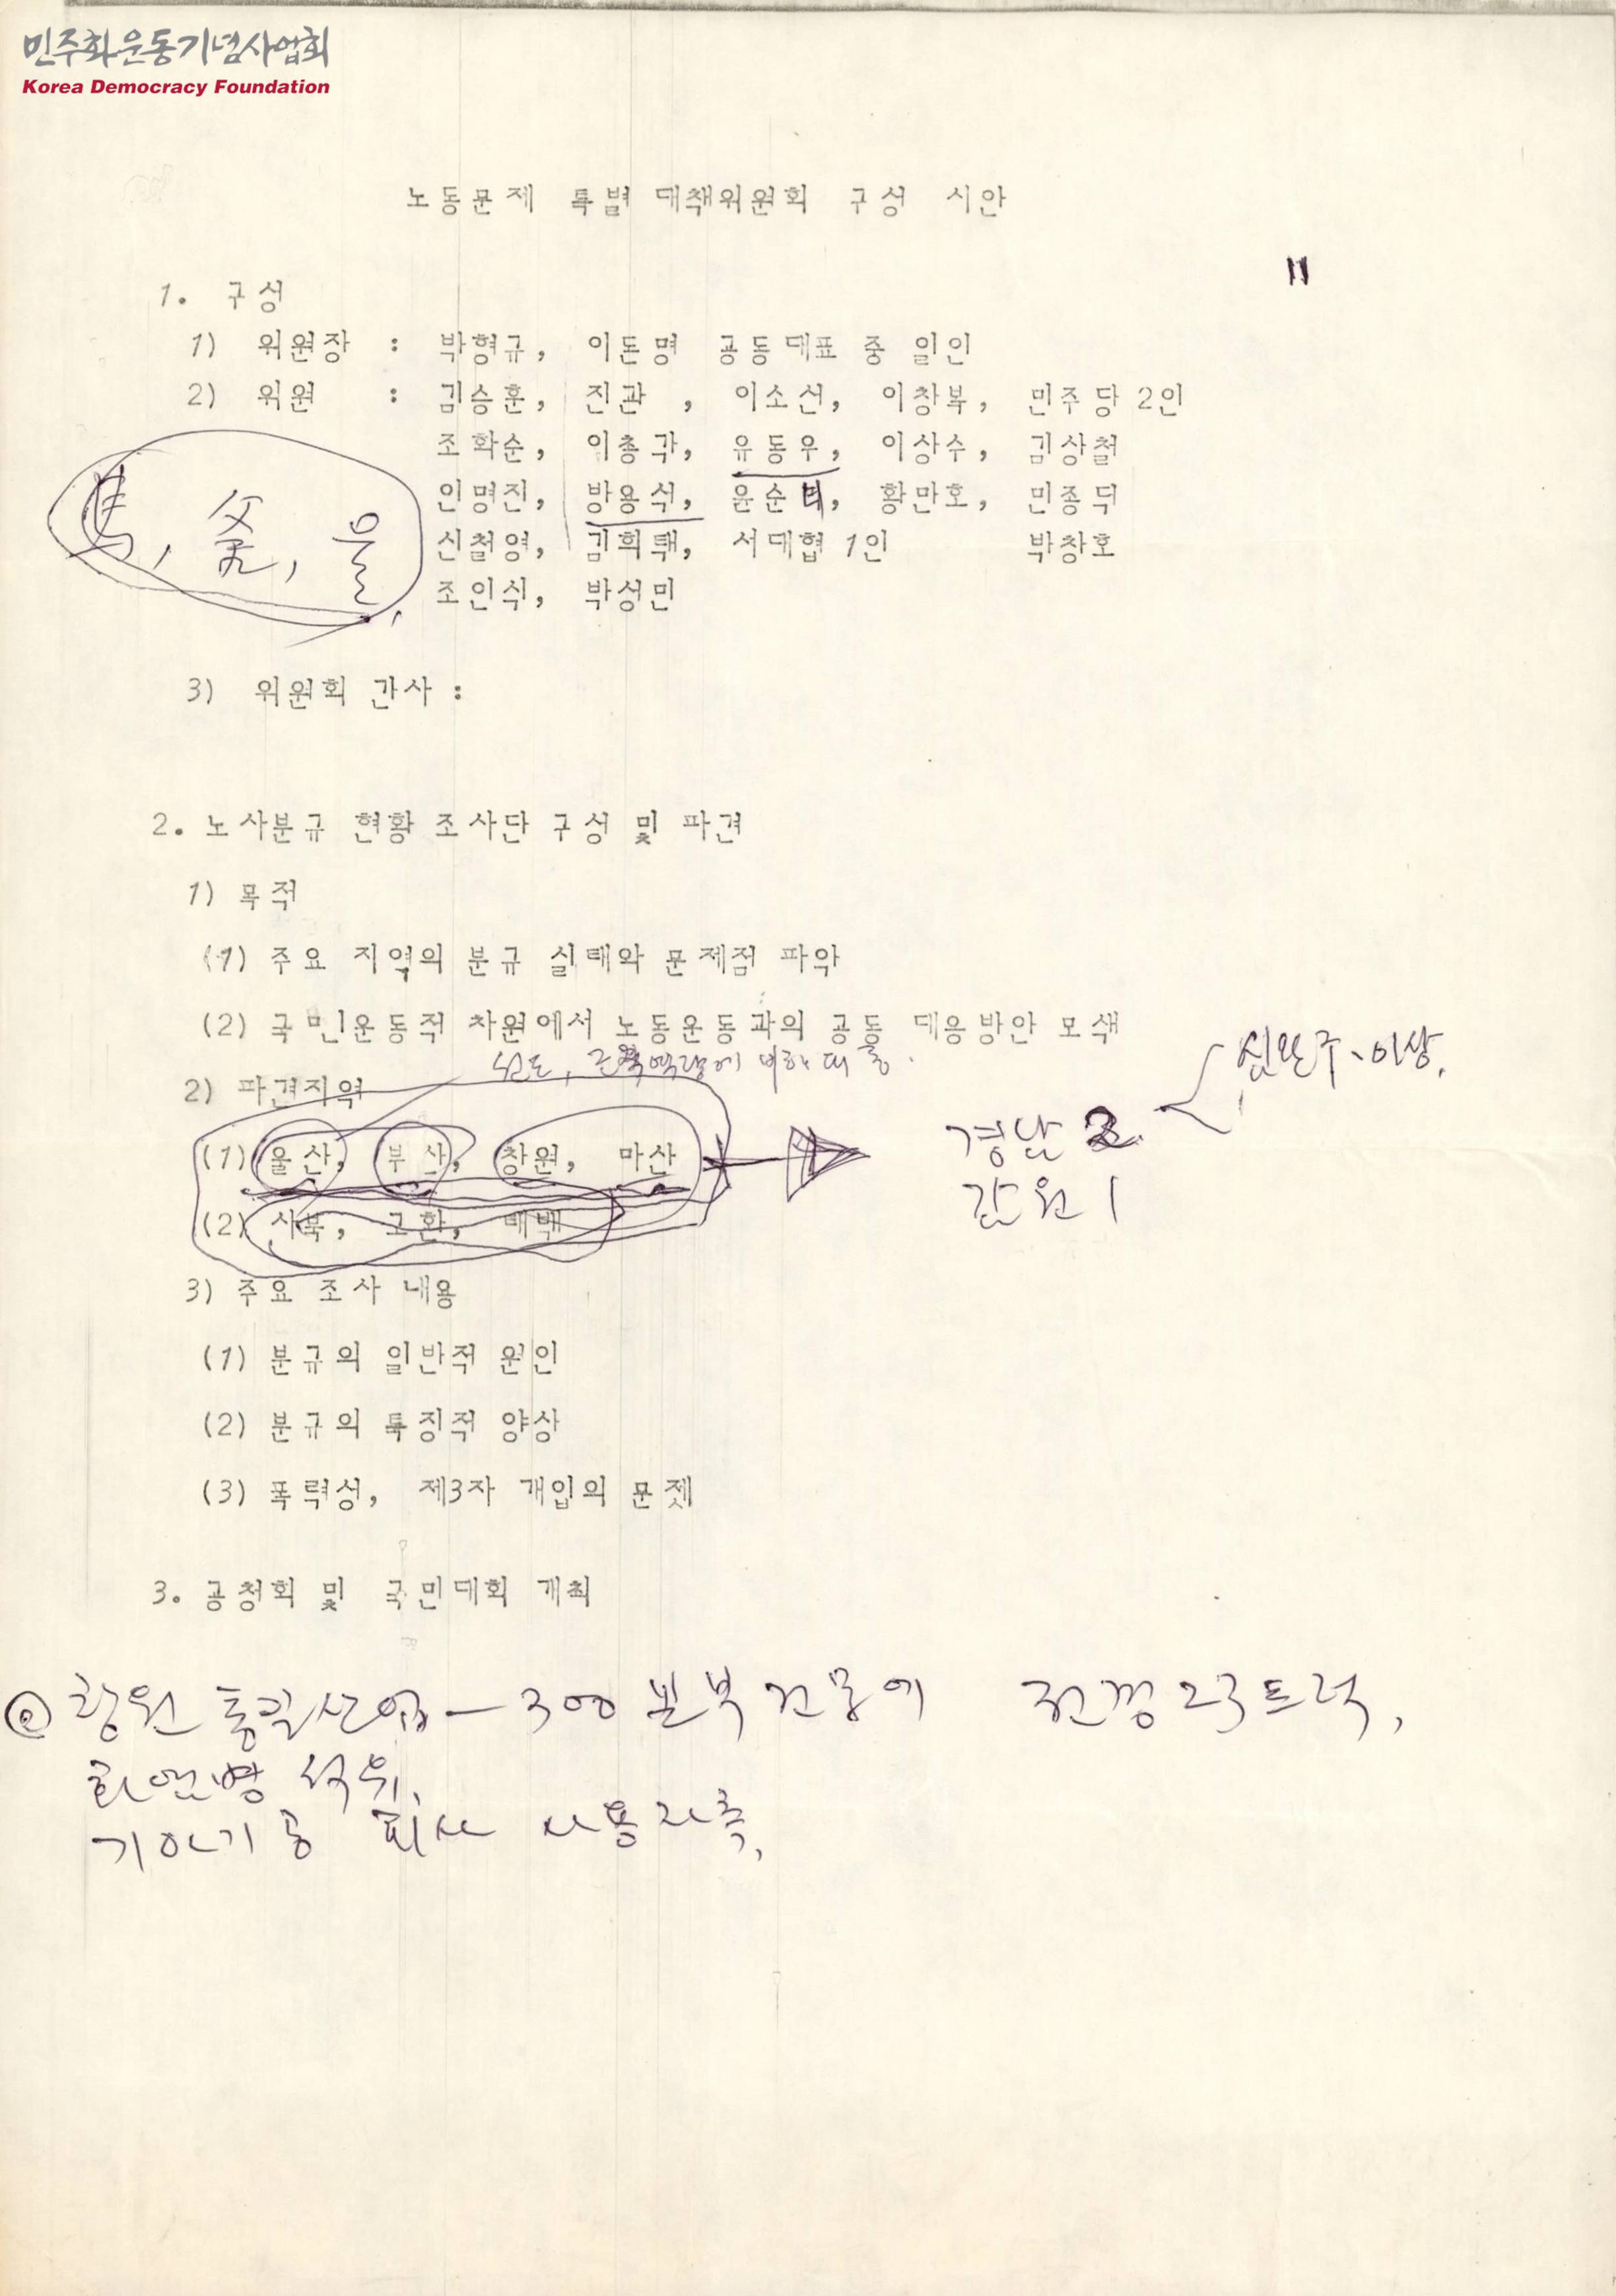 민주화운동기념사업회
Korea Democracy Foundation
노동문제 특별 대책위원회 구성 시안
11
1. 구성
1) 위원장 : 박형규, 이돈명 공동대표 중 일인
2) 위원 : 김승훈, 진관 , 이소선, 이창복, 민주당 2인
조화순, 이총각, 유동우, 이상수, 김상철
인명진, 방용석, 윤순녀, 황만호, 민종덕
신철영, 김희택, 서대협 1인 박창호
조인식, 박성민
馬, 釜, 울
3) 위원회 간사 :
2. 노사분규 현황 조사단 구성 및 파견
1) 목적
(1) 주요 지역의 분규 실태와 문제점 파악
(2) 국민운동적 차원에서 노동운동과의 공동 대응방안 모색
2) 파견지역
(1) 울산, 부산, 창원, 마산
경남 2
강원 1
(2) 사북, 고한, 태백
3) 주요 조사 내용
(1) 분규의 일반적 원인
(2) 분규의 특징적 양상
(3) 폭력성, 제3자 개입의 문젯
3. 공청회 및 국민대회 개최
창원 통일산업 — 300 본부건물에 전경 23트럭,
화염병
기아기공 회사 사용자측,